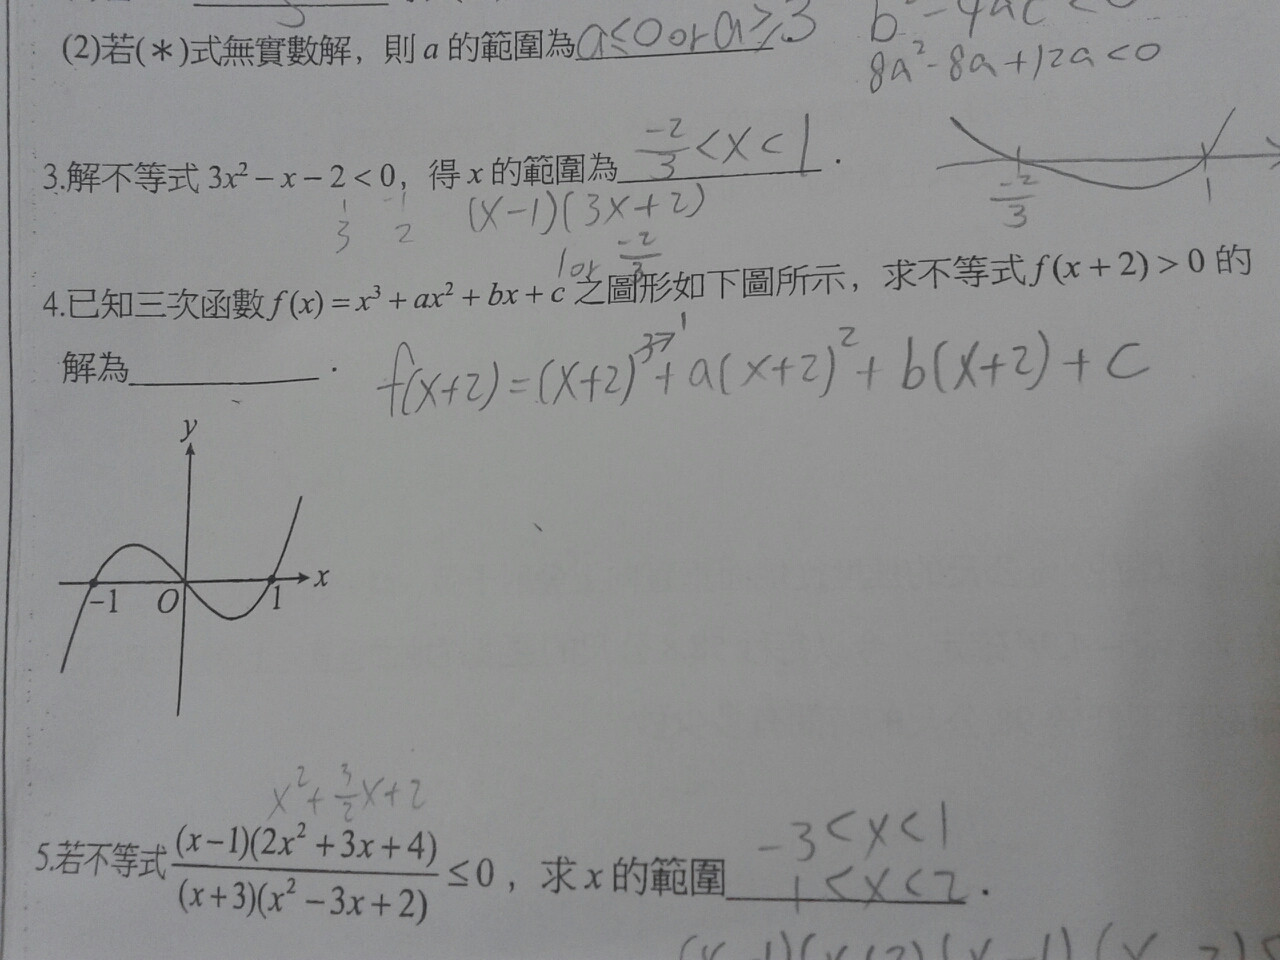 (2)若(＊)式無實數解，則 a 的範圍為 a≤0 or a≥3
8a²-8a+12a<0
3.解不等式 3x² − x − 2 < 0，得 x 的範圍為 -2/3 < x < 1 .
1 -1
3 2
(x-1)(3x+2)
-2/3 1
1 or -2/3
4.已知三次函數 f(x) = x³ + ax² + bx + c 之圖形如下圖所示，求不等式 f(x + 2) > 0 的
解為________ .
f(x+2)=(x+2)³+a(x+2)²+b(x+2)+c
y
-1 O 1 x
x²+3/2x+2
5.若不等式 (x−1)(2x² +3x+4)/(x+3)(x² −3x+2) ≤ 0，求 x 的範圍 -3<x<1
1<x<2 .